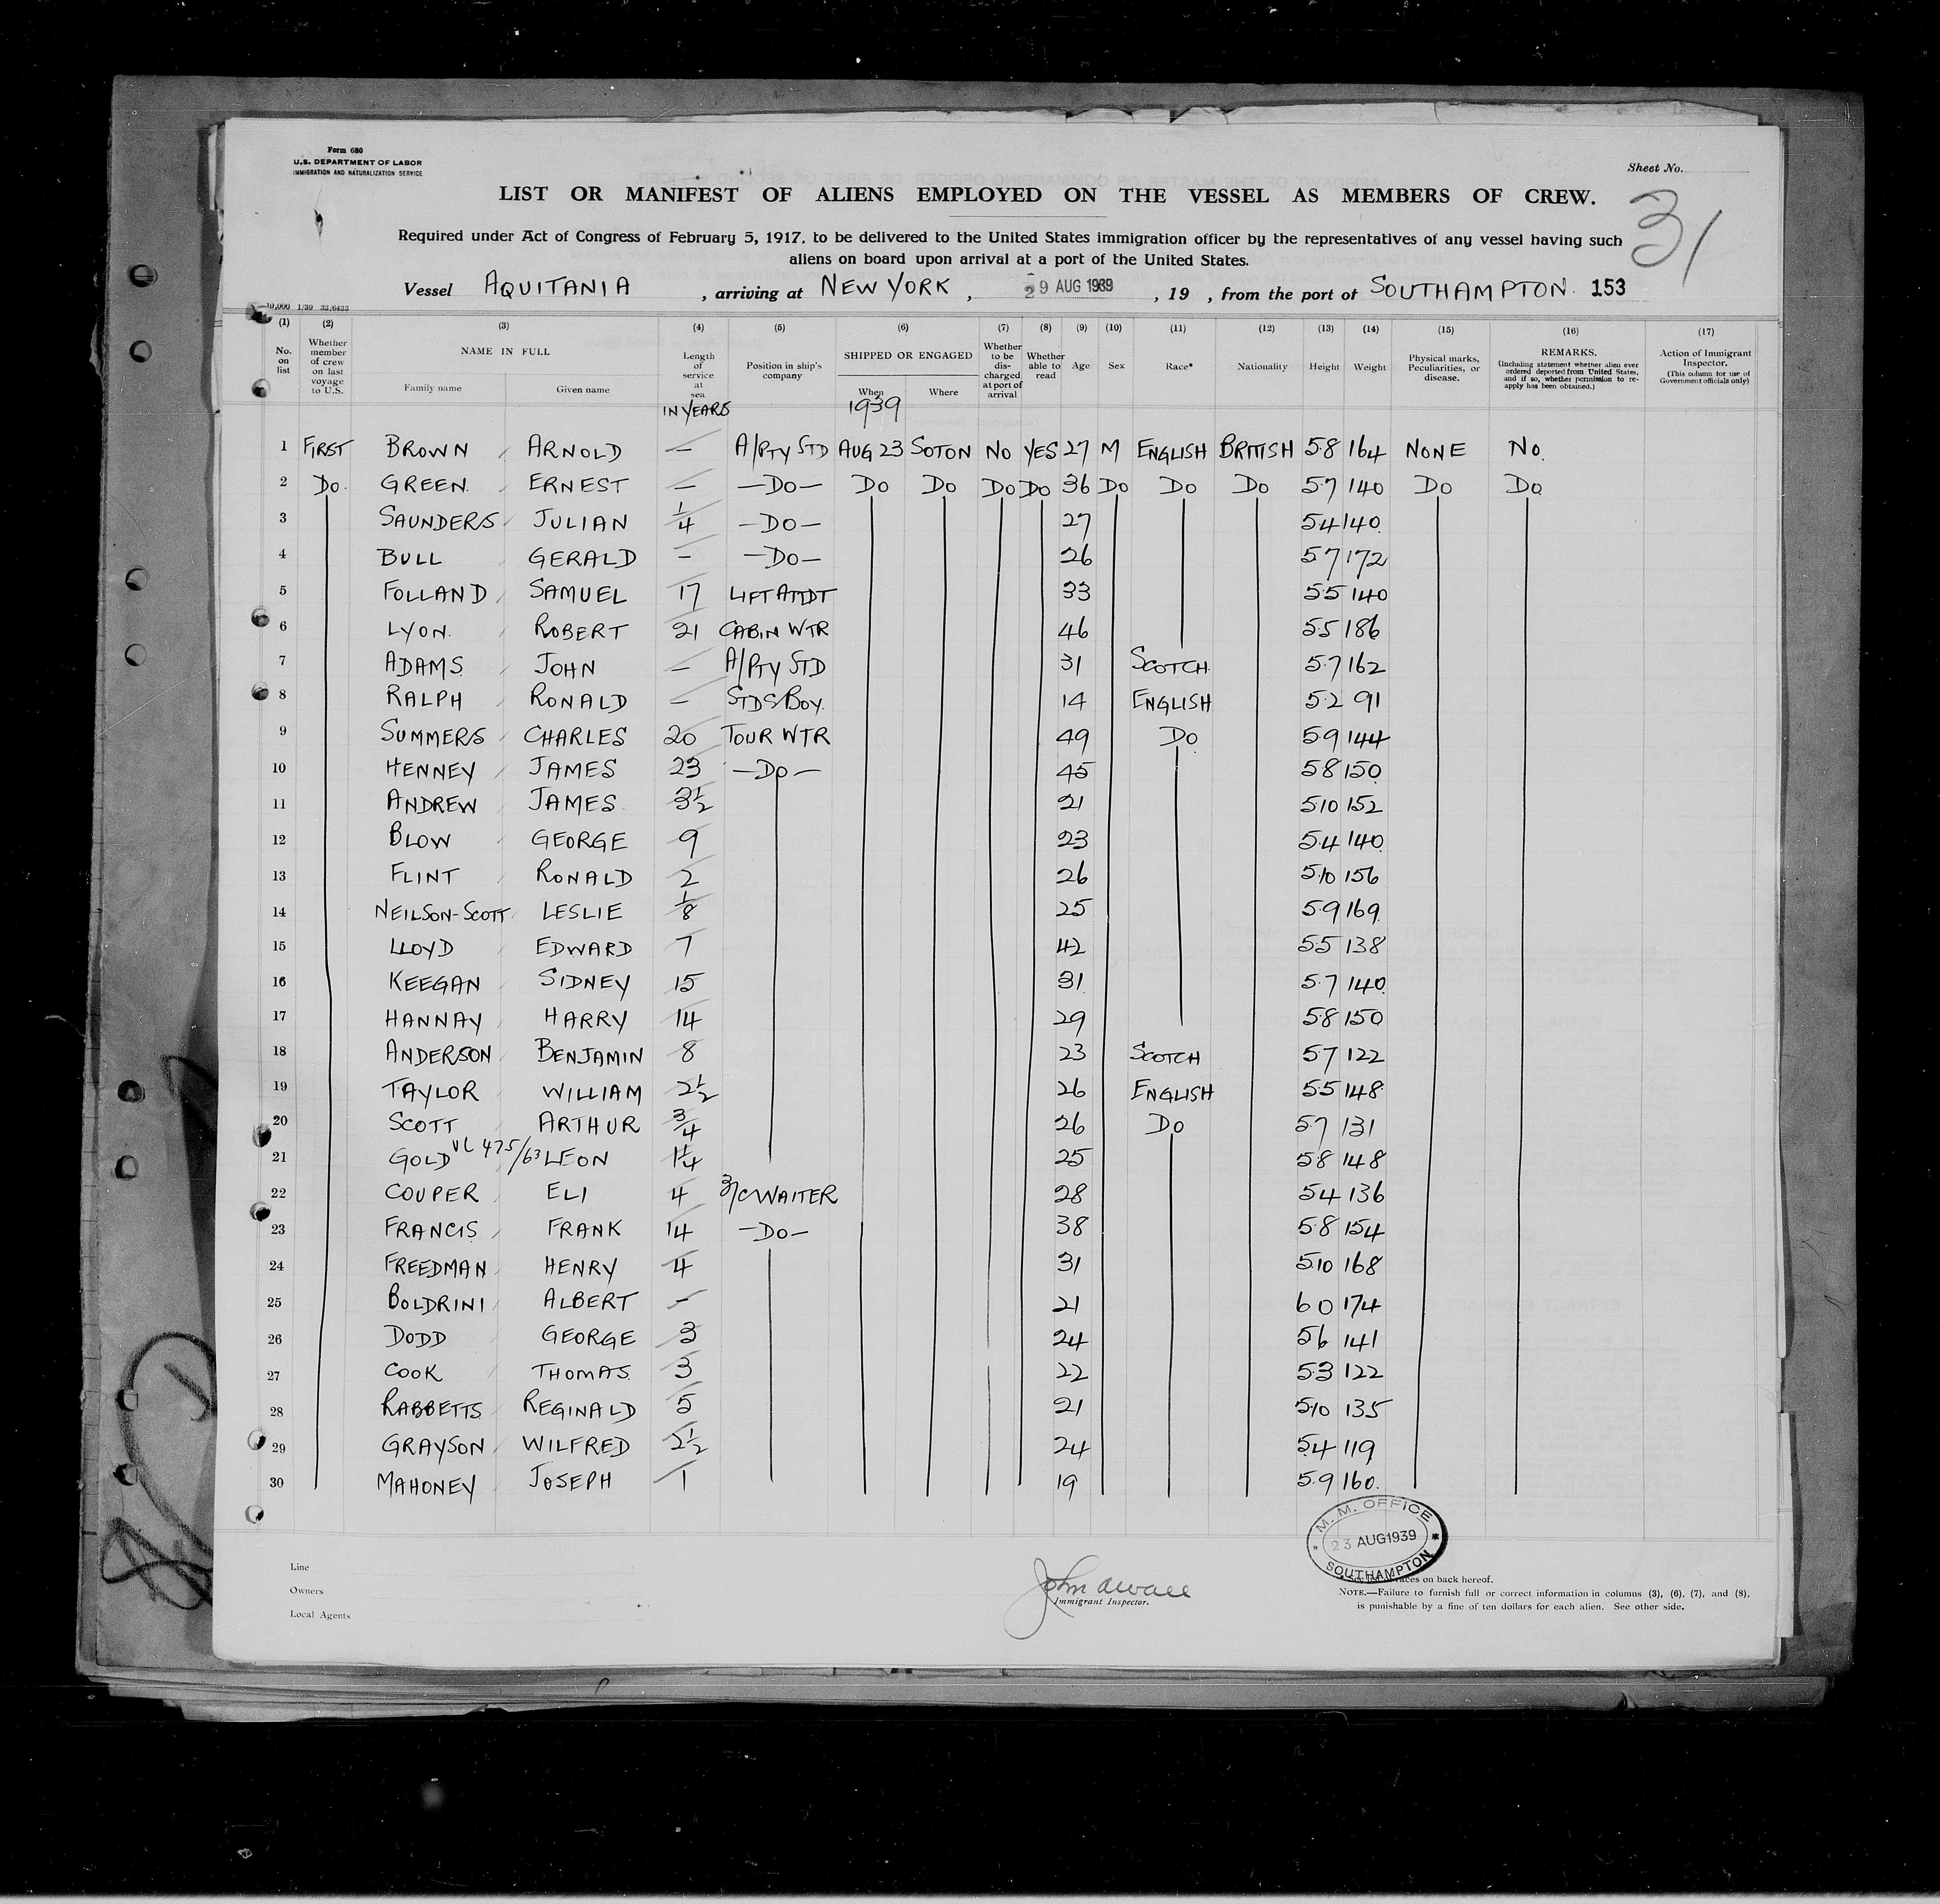 Form 680
U.S. DEPARTMENT OF LABOR
IMMIGRATION AND NATURALIZATION SERVICE
Sheet No.
31
LIST OR MANIFEST OF ALIENS EMPLOYED ON THE VESSEL AS MEMBERS OF CREW.
Required under Act of Congress of February 5, 1917, to be delivered to the United States immigration officer by the representatives of any vessel having such
aliens on board upon arrival at a port of the United States.
Vessel AQUITANIA , arriving at NEW YORK , 29 AUG 1939 , 19 , from the port of SOUTHAMPTON. 153
10,000 1/39 33/6433
(1) (2) (3) (4) (5) (6) (7) (8) (9) (10) (11) (12) (13) (14) (15) (16) (17)
No. on list
Whether member of crew on last voyage to U.S.
NAME IN FULL
Family name Given name
Length of service at sea
Position in ship's company
SHIPPED OR ENGAGED
When Where
Whether to be discharged at port of arrival
Whether able to read
Age
Sex
Race*
Nationality
Height
Weight
Physical marks, Peculiarities, or disease.
REMARKS. (Including statement whether alien ever ordered deported from United States, and if so, whether permission to reapply has been obtained.)
Action of Immigrant Inspector. (This column for use of Government officials only)
IN YEARS 1939
1 FIRST BROWN ARNOLD — A/PTY STD AUG 23 SOTON NO YES 27 M ENGLISH BRITISH 5.8 164 NONE NO.
2 DO. GREEN ERNEST — —DO— DO DO DO DO 36 DO DO DO 5.7 140 DO DO
3 SAUNDERS JULIAN 1/4 —DO— 27 5.4 140
4 BULL GERALD — —DO— 26 5.7 172
5 FOLLAND SAMUEL 17 LIFT ATTDT 33 5.5 140
6 LYON. ROBERT 21 CABIN WTR 46 5.5 186
7 ADAMS JOHN — A/PTY STD 31 SCOTCH. 5.7 162
8 RALPH RONALD — STDS/BOY. 14 ENGLISH 5.2 91
9 SUMMERS CHARLES 20 TOUR WTR 49 DO 5.9 144
10 HENNEY JAMES 23 —DO— 45 5.8 150
11 ANDREW JAMES 3 1/2 21 5.10 152
12 BLOW GEORGE 9 23 5.4 140
13 FLINT RONALD 2 26 5.10 156
14 NEILSON-SCOTT LESLIE 1/8 25 5.9 169
15 LLOYD EDWARD 7 42 5.5 138
16 KEEGAN SIDNEY 15 31 5.7 140
17 HANNAY HARRY 14 29 5.8 150
18 ANDERSON BENJAMIN 8 23 SCOTCH 5.7 122
19 TAYLOR WILLIAM 2 1/2 26 ENGLISH 5.5 148
20 SCOTT ARTHUR 3/4 26 DO 5.7 131
21 GOLD VL 475/63 LEON 1 1/4 25 5.8 148
22 COUPER ELI 4 3/C WAITER 28 5.4 136
23 FRANCIS FRANK 14 —DO— 38 5.8 154
24 FREEDMAN HENRY 4 31 5.10 168
25 BOLDRINI ALBERT — 21 6 0 174
26 DODD GEORGE 3 24 5.6 141
27 COOK THOMAS 3 22 5.3 122
28 RABBETTS REGINALD 5 21 5.10 135
29 GRAYSON WILFRED 2 1/2 24 5.4 119
30 MAHONEY JOSEPH 1 19 5.9 160.
M. M. OFFICE
23 AUG 1939
SOUTHAMPTON
Line
Owners
Local Agents
Immigrant Inspector.
races on back hereof.
NOTE.—Failure to furnish full or correct information in columns (3), (6), (7), and (8),
is punishable by a fine of ten dollars for each alien. See other side.